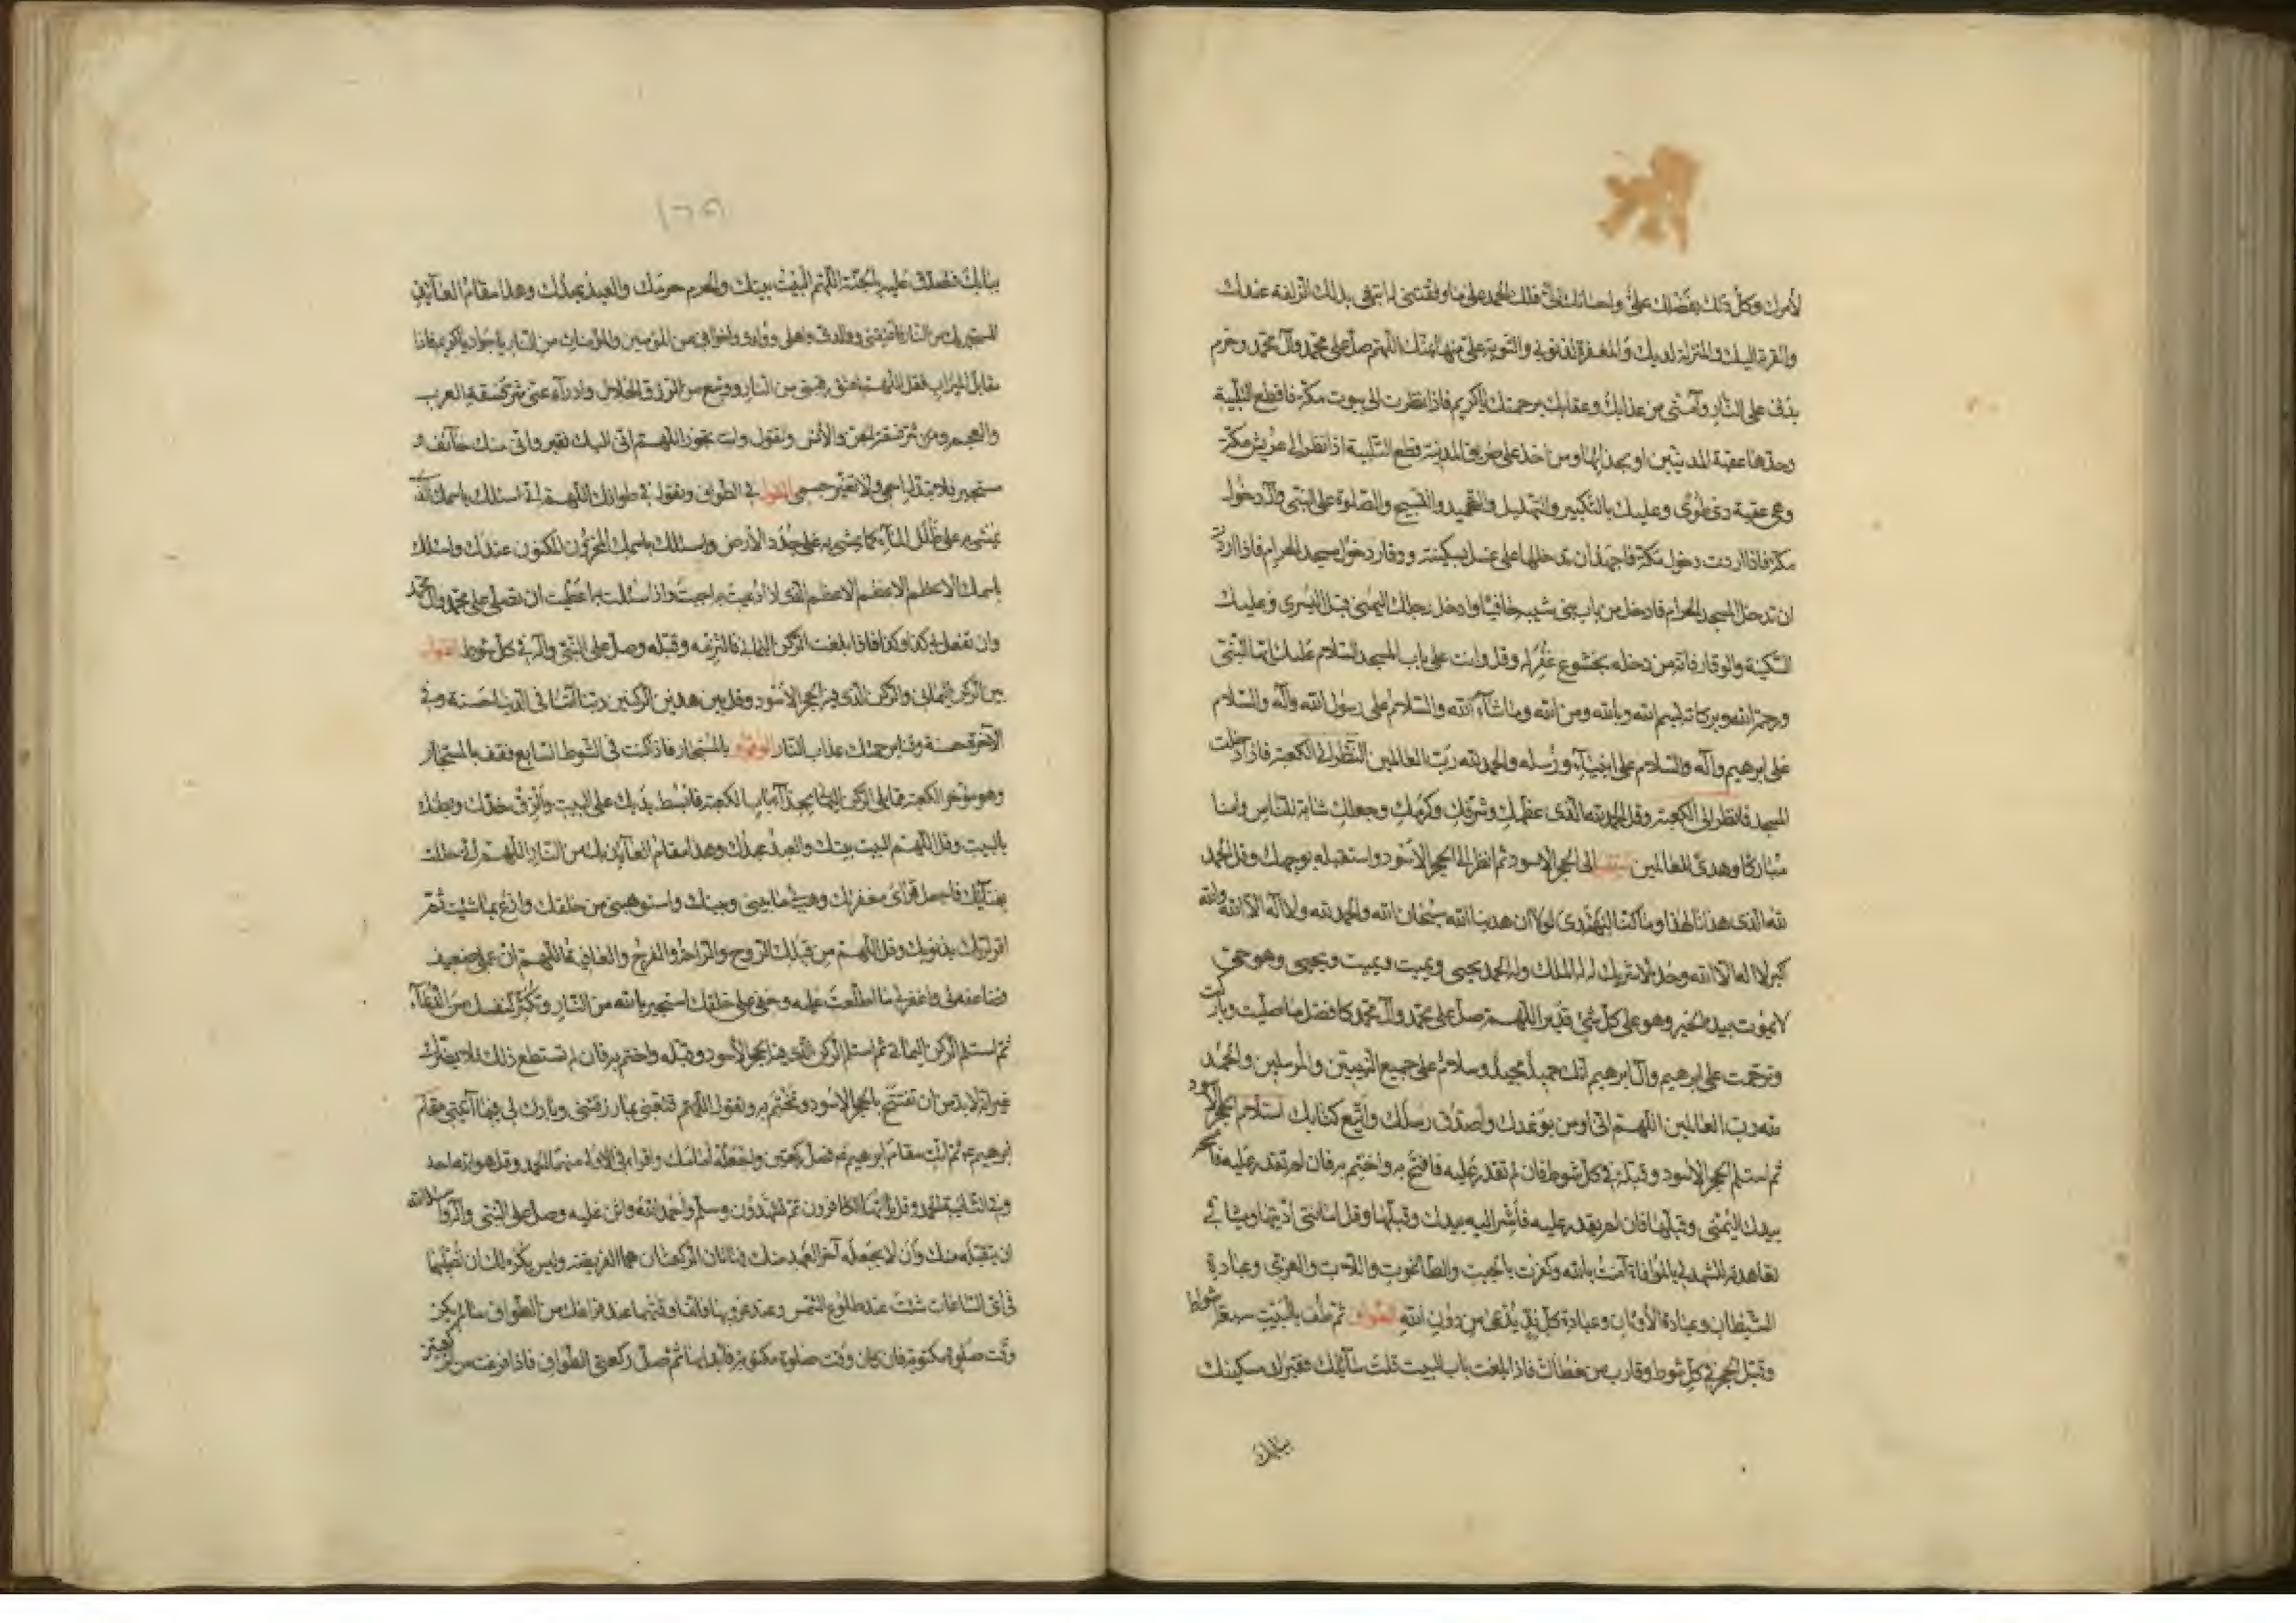 لأمرك وكل ذلك بفضلك علي واحسانك الي فلك الحمد على ما وفقتني له ابتغي بذلك الزلفة عندك
والقربة اليك والمنزلة لديك والمغفرة لذنوبي والتوبة علي منها بمنك اللهم صل على محمد وآل محمد وحرم
بدني على النار وآمني من عذابك وعقابك برحمتك يا كريم فاذا نظرت الى بيوت مكة فاقطع التلبية
وحدها عقبة المدنيين او بحذائها ومن اخذ على طريق المدينة قطع التلبية اذا نظر الى عريش مكة
وهي عقبة ذي طوى وعليك بالتكبير والتهليل والتحميد والتسبيح والصلوة على النبي وآله دخول
مكة فاذا اردت دخول مكة فاجهد ان تدخلها على غسل بسكينة ووقار دخول مسجد الحرام فاذا اردت
ان تدخل المسجد الحرام فادخل من باب بني شيبه حافيا وادخل رجلك اليمنى قبل اليسرى وعليك
السكينة والوقار فانه من دخله بخشوع غفر له وقل وانت على باب المسجد السلام عليك ايها النبي
ورحمة الله وبركاته بسم الله وبالله ومن الله وما شاء الله والسلام على رسول الله وآله والسلام
على ابرهيم وآله والسلام على انبياء الله ورسله والحمد لله رب العالمين النظر الى الكعبة فاذا دخلت
المسجد فانظر الى الكعبة وقل الحمد لله الذي عظمك وشرفك وكرمك وجعلك مثابة للناس وامنا
مباركا وهدى للعالمين الى الحجر الاسود ثم انظر الى الحجر الاسود واستقبله بوجهك وقل الحمد
لله الذي هدانا لهذا وما كنا لنهتدي لولا ان هدينا الله سبحان الله والحمد لله ولا اله الا الله والله
اكبر لا اله الا الله وحده لا شريك له له الملك وله الحمد يحيي ويميت ويميت ويحيي وهو حي
لا يموت بيده الخير وهو على كل شئ قدير اللهم صل على محمد وآل محمد كافضل ما صليت وباركت
وترحمت على ابرهيم وآل ابرهيم انك حميد مجيد وسلام على جميع النبيين والمرسلين والحمد
لله رب العالمين اللهم اني اومن بوعدك واصدق رسلك واتبع كتابك استلام الحجر الاسود
ثم استلم الحجر الاسود وقبله في كل شوط فان لم تقدر عليه فافتح به واختم به فان لم تقدر عليه فامسحه
بيدك اليمنى وقبلها فان لم تقدر عليه فأشر اليه بيدك وقبلها وقل امانتي اديتها وميثاقي
تعاهدته لتشهد لي بالموافاة آمنت بالله وكفرت بالجبت والطاغوت واللات والعزى وعبادة
الشيطان وعبادة الأوثان وعبادة كل ند يدعى من دون الله الطواف ثم طف بالبيت سبعة اشواط
وقبل الحجر في كل شوط وقارب بين خطاك فاذا بلغت باب البيت قلت سائلك فقيرك مسكينك
ببابك
١٢٥
ببابك فتصدق عليه بالجنة اللهم البيت بيتك والحرم حرمك والعبد عبدك وهذا مقام العائذ
المستجير بك من النار فاعتقني ووالدي واهلي وولدي واخواني من المؤمنين والمؤمنات من النار يا جواد يا كريم فاذا
مقابل الميزاب فقل اللهم اعتق رقبتي من النار ووسع من الرزق الحلال وادرأ عني شر فسقة العرب
والعجم ومن شر فسقة الجن والأنس وتقول وانت تجوز اللهم اني اليك فقير واني منك خائف و
مستجير فلا تبدل اسمي ولا تغير جسمي القول في الطواف وتقول في طوافك اللهم اني اسئلك باسمك الذي
يمشى به على طلل الماء كما يمشى به على جدد الأرض واسئلك باسمك المخزون المكنون عندك واسئلك
باسمك الاعظم الاعظم الاعظم الذي اذا دعيت به اجبت واذا سئلت به اعطيت ان تصلي على محمد وآل محمد
وان تفعل بي كذا وكذا فاذا بلغت الركن اليماني فالتزمه وقبله وصل على النبي وآله في كل شوط القول
بين الركن اليماني والركن الذي فيه الحجر الأسود وقل بين هذين الركنين ربنا آتنا في الدنيا حسنة وفي
الآخرة حسنة وقنا برحمتك عذاب النار الوقوف بالمستجار فاذا كنت في الشوط السابع فقف بالمستجار
وهو مؤخر الكعبة مما يلي الركن اليماني بحذاء باب الكعبة فابسط يديك على البيت والزق خدك وبطنك
بالبيت وقل اللهم البيت بيتك والعبد عبدك وهذا مقام العائذ بك من النار اللهم اني حللت
بفنائك فاجعل قراي مغفرتك وهب لي ما بيني وبينك واستوهبني من خلقك وادع بما شئت ثم
اقر لربك بذنوبك وقل اللهم من قبلك الروح والراحة والفرج والعافية اللهم ان عملي ضعيف
فضاعفه لي واغفر لي ما اطلعت عليه وخفي على خلقك استجير بالله من النار وتكثر لنفسك من الدعاء
ثم استلم الركن اليماني ثم استلم الركن الذي فيه الحجر الأسود وقبله واختم به فان لم تستطع ذلك فلا يضرك
غير انه لا بد من ان تفتتح بالحجر الاسود وتختم به وتقول اللهم قنعني بما رزقتني وبارك لي فيما آتيتني مقام
ابرهيم ثم ائت مقام ابرهيم فصل ركعتين واجعله امامك واقرا في الاولى منهما الحمد وقل هو الله احد
وفي الثانية الحمد وقل يا ايها الكافرون ثم تشهد وسلم واحمد الله واثن عليه وصل على النبي وآله واسئل الله
ان يتقبله منك وان لا يجعله آخر العهد منك فهاتان الركعتان هما الفريضة وليس يكره لك ان تصليهما
في اي الساعات شئت عند طلوع الشمس وعند غروبها فانما وقتهما عند فراغك من الطواف ما لم يكن
وقت صلوة مكتوبة فان كان وقت صلوة مكتوبة فابدأ بها ثم صل ركعتي الطواف فاذا فرغت من الركعتين